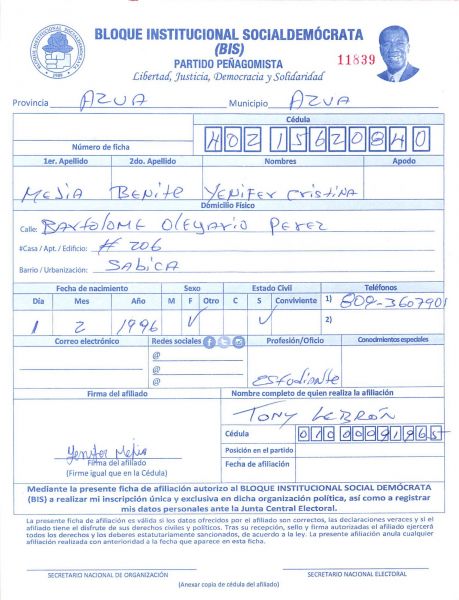 BLOQUE INSTITUCIONAL SOCIALDEMÓCRATA
(BIS)
PARTIDO PEÑAGOMISTA
11839
Libertad, Justicia, Democracia y Solidaridad
Provincia AZUA Municipio AZUA
Cédula
Número de ficha 402 1562084 0
1er. Apellido 2do. Apellido Nombres Apodo
MEJIA BENITE YENIFER CRISTINA
Domicilio Físico
Calle: BARTOLOME OLEGARIO PEREZ
#Casa / Apt. / Edificio: # 206
Barrio / Urbanización: SABICA
Fecha de nacimiento Sexo Estado Civil Teléfonos
Día Mes Año M F Otro C S Conviviente 1) 809-3607901
1 2 1996 ✓ ✓ 2)
Correo electrónico Redes sociales Profesión/Oficio Conocimientos especiales
@
@
@
ESTUDIANTE
Firma del afiliado Nombre completo de quien realiza la afiliación
TONY LEBRÓN
Cédula 01000091965
Yenifer Mejia
Firma del afiliado
(Firme igual que en la Cédula)
Posición en el partido
Fecha de afiliación
Mediante la presente ficha de afiliación autorizo al BLOQUE INSTITUCIONAL SOCIAL DEMÓCRATA
(BIS) a realizar mi inscripción única y exclusiva en dicha organización política, así como a registrar
mis datos personales ante la Junta Central Electoral.
La presente ficha de afiliación es válida si los datos ofrecidos por el afiliado son correctos, las declaraciones veraces y si el
afiliado tiene el disfrute de sus derechos civiles y políticos. Tras su recepción, sello y firma autorizadas el afiliado ejercerá
todos los derechos y los deberes estatutariamente sancionados, de acuerdo a la ley. La presente afiliación anula cualquier
afiliación realizada con anterioridad a la fecha que aparece en esta ficha.
SECRETARIO NACIONAL DE ORGANIZACIÓN SECRETARIO NACIONAL ELECTORAL
(Anexar copia de cédula del afiliado)